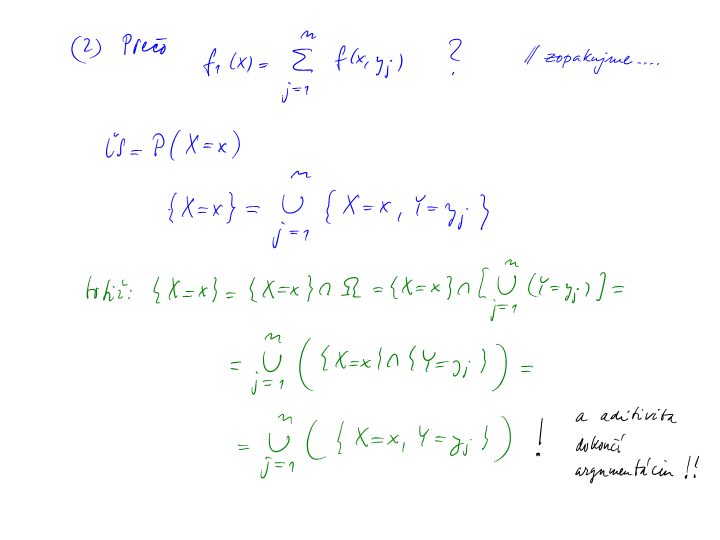 (2) Prečo f₁(x) = ∑_{j=1}^{n} f(x, y_j) ? // zopakujme....
ĽS = P(X=x)
{X=x} = ⋃_{j=1}^{n} {X=x, Y=y_j}
totiž: {X=x} = {X=x} ∩ Ω = {X=x} ∩ [⋃_{j=1}^{n} (Y=y_j)] =
= ⋃_{j=1}^{n} ({X=x} ∩ {Y=y_j}) =
= ⋃_{j=1}^{n} ({X=x, Y=y_j}) !
a aditivita
dokončí
argumentáciu !!